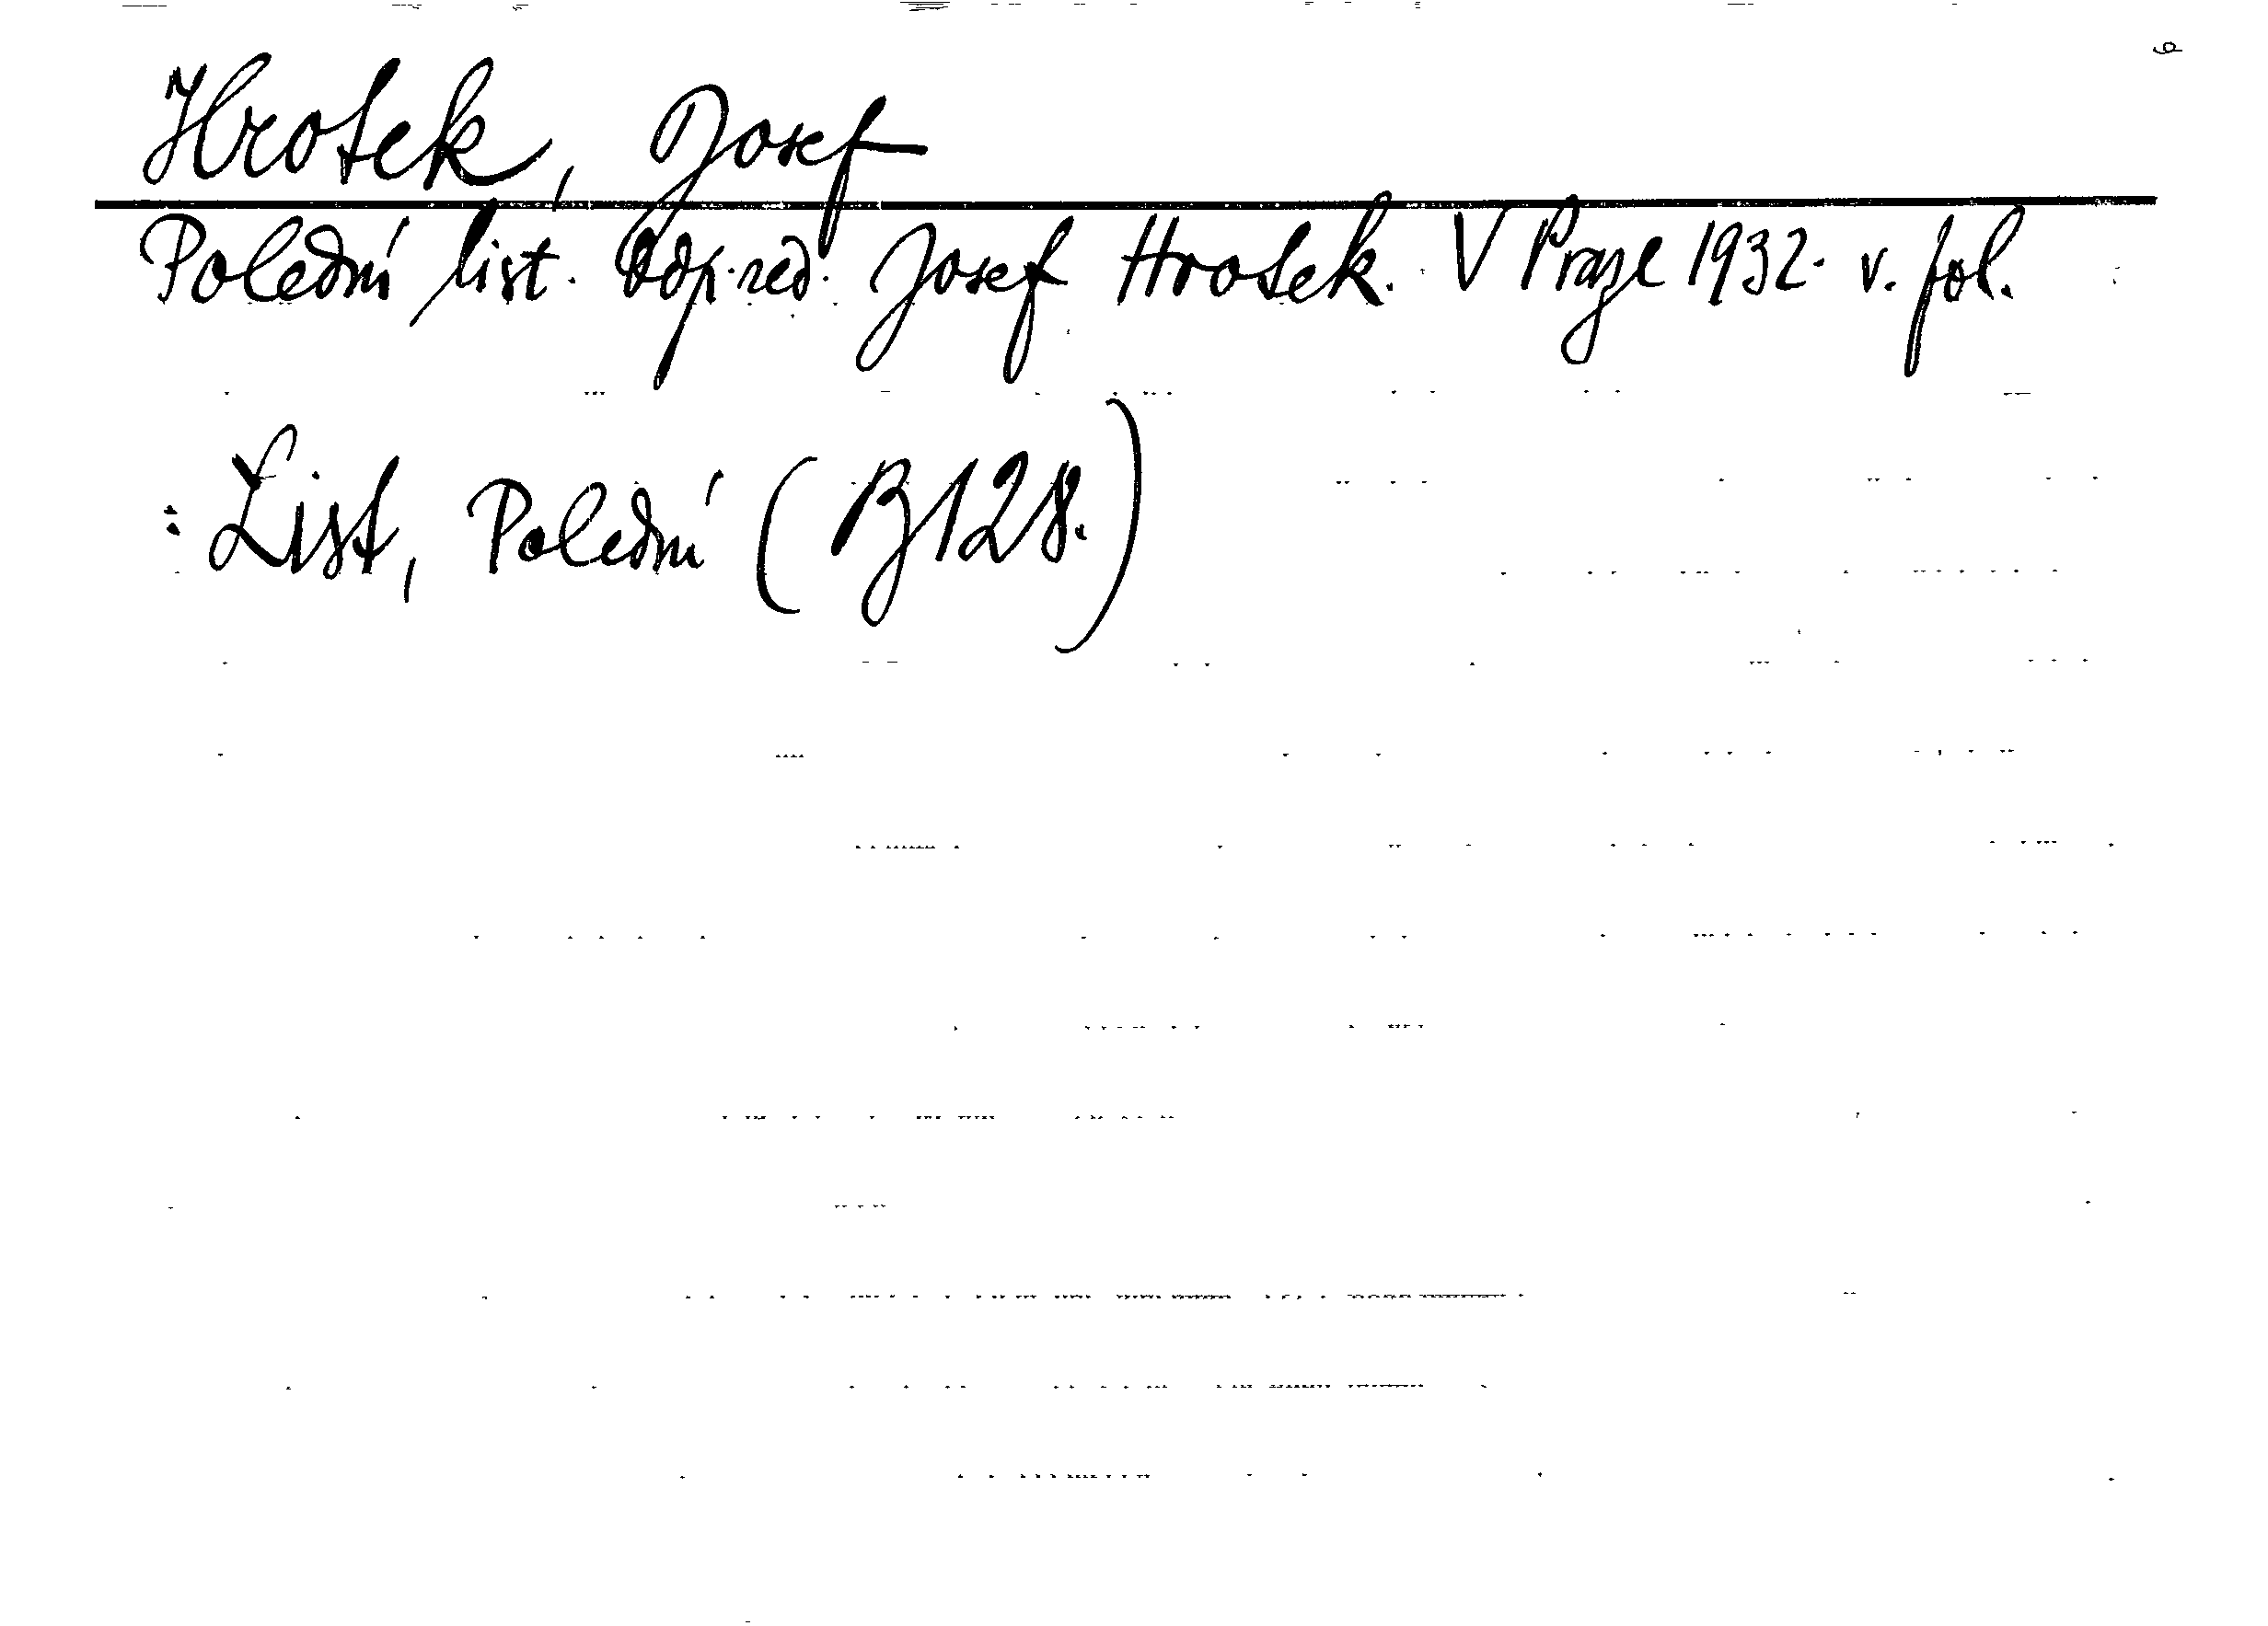 Hrotek, Josef
Polední list. Odp. red. Josef Hrotek. V Praze 1932. v. fol.
: List, Polední (B 128.)